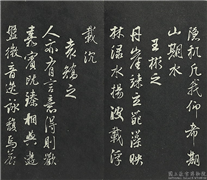 隱机凡我仰希期
山期水
王彬之
丹崖竦立葩藻映
林淥水揚波載浮
載沉
袁嶠之
人亦有言意得則歡
嘉賓既臻相與遊
盤微音迭詠馥焉若